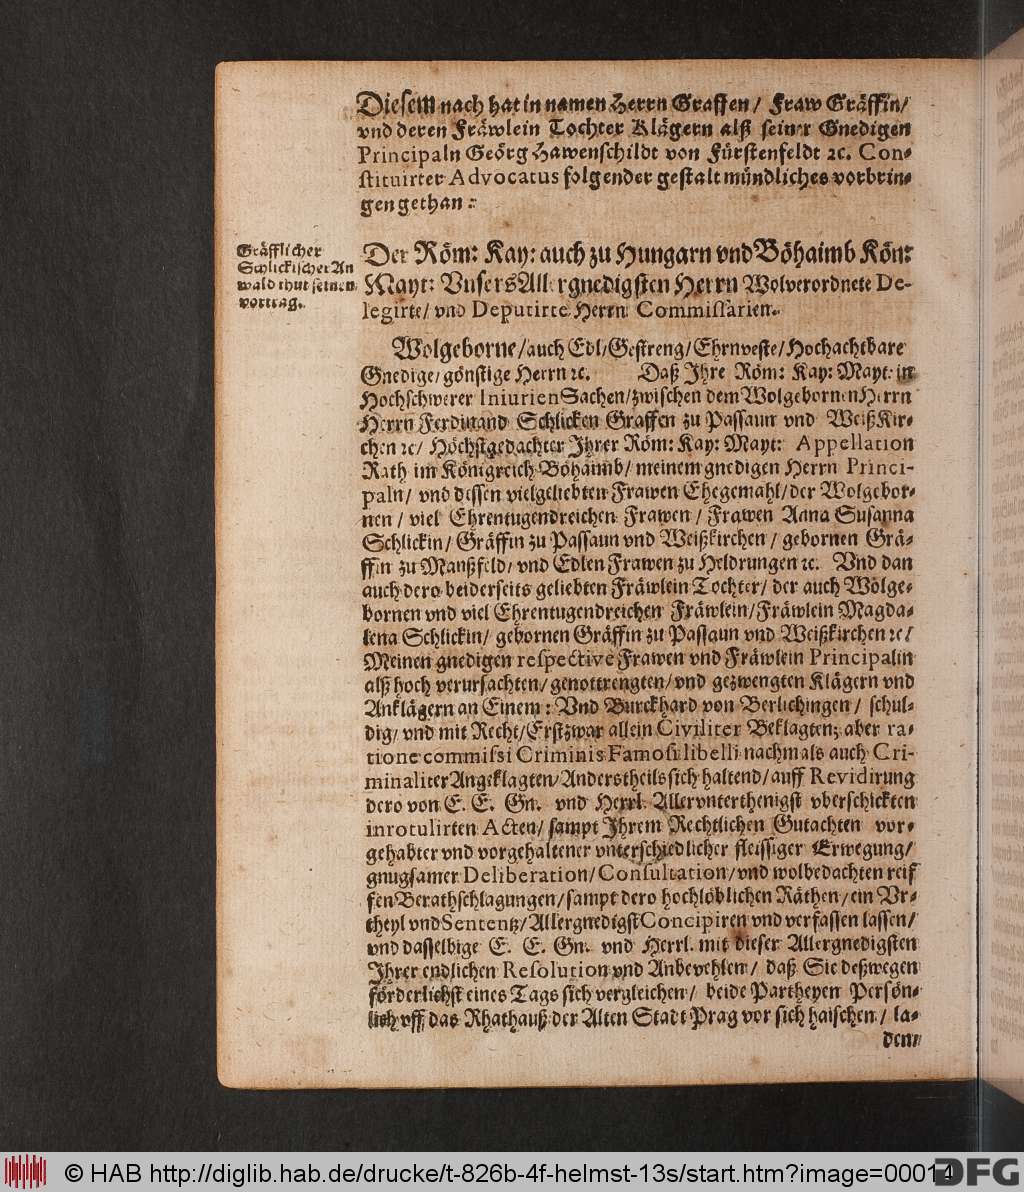 Diesem nach hat in namen Herrn Graffen / Fraw Gräffin /
vnd deren Fräwlein Tochter Klägern alß seiner Gnedigen
Principaln Geörg Hawenschildt von Fürstenfeldt ꝛc. Con-
stituirter Advocatus folgender gestalt mündliches vorbrin-
gen gethan:
Gräfflicher
Schlickischer An
wald thut seinen
vortrag.
Der Röm: Kay: auch zu Hungarn vnd Böhaimb Kön:
Mayt: Vnsers Allergnedigsten Herrn Wolverordnete De-
legirte / vnd Deputirte Herrn Commissarien.
Wolgeborne / auch Edl / Gestreng / Ehrnveste / Hochachtbare
Gnedige / gönstige Herrn ꝛc. Daß Ihre Röm: Kay: Mayt: in
Hochschwerer Iniurien Sachen / zwischen dem Wolgebornen Herrn
Herrn Ferdinand Schlicken Graffen zu Passaun vnd Weißkir-
chen ꝛc / Höchstgedachter Ihrer Röm: Kay: Mayt: Appellation
Rath im Königreich Böhaimb / meinem gnedigen Herrn Princi-
paln / vnd dessen vielgeliebten Frawen Ehegemahl / der Wolgebor-
nen / viel Ehrentugendreichen Frawen / Frawen Anna Susanna
Schlickin / Gräffin zu Passaun vnd Weißkirchen / gebornen Grä-
ffin zu Manßfeld / vnd Edlen Frawen zu Heldrungen ꝛc. Vnd dan
auch dero beiderseits geliebten Fräwlein Tochter / der auch Wolge-
bornen vnd viel Ehrentugendreichen Fräwlein / Fräwlein Magda-
lena Schlickin / gebornen Gräffin zu Passaun vnd Weißkirchen ꝛc /
Meinen gnedigen respective Frawen vnd Fräwlein Principalin
alß hoch verursachten / genottrengten / vnd gezwengten Klägern vnd
Anklägern an Einem: Vnd Burckhard von Berlichingen / schul-
dig / vnd mit Recht / Erst zwar allein Civiliter Beklagten; aber ra-
tione commissi Criminis Famosi libelli nachmals auch Cri-
minaliter Angeklagten / Anderstheils sich haltend / auff Revidirung
dero von E. E. Gn. vnd Herrl. Allervnterthenigst vberschickten
inrotulirten Acten / sampt Ihrem Rechtlichen Gutachten vor-
gehabter vnd vorgehaltener vnterschiedlicher fleissiger Erwegung /
gnugsamer Deliberation / Consultation / vnd wolbedachten reif
fen Berathschlagungen / sampt dero hochlöblichen Räthen / ein Vr-
theyl vnd Sententz / Allergnedigst Concipiren vnd verfassen lassen /
vnd dasselbige E. E. Gn. vnd Herrl. mit dieser Allergnedigsten
Ihrer endlichen Resolution vnd Anbevehlen / daß Sie deßwegen
förderlichst eines Tags sich vergleichen / beide Partheyen Persön-
lich vff das Rhathauß der Alten Stadt Prag vor sich haischen / la-
den /
© HAB http://diglib.hab.de/drucke/t-826b-4f-helmst-13s/start.htm?image=00014
DFG